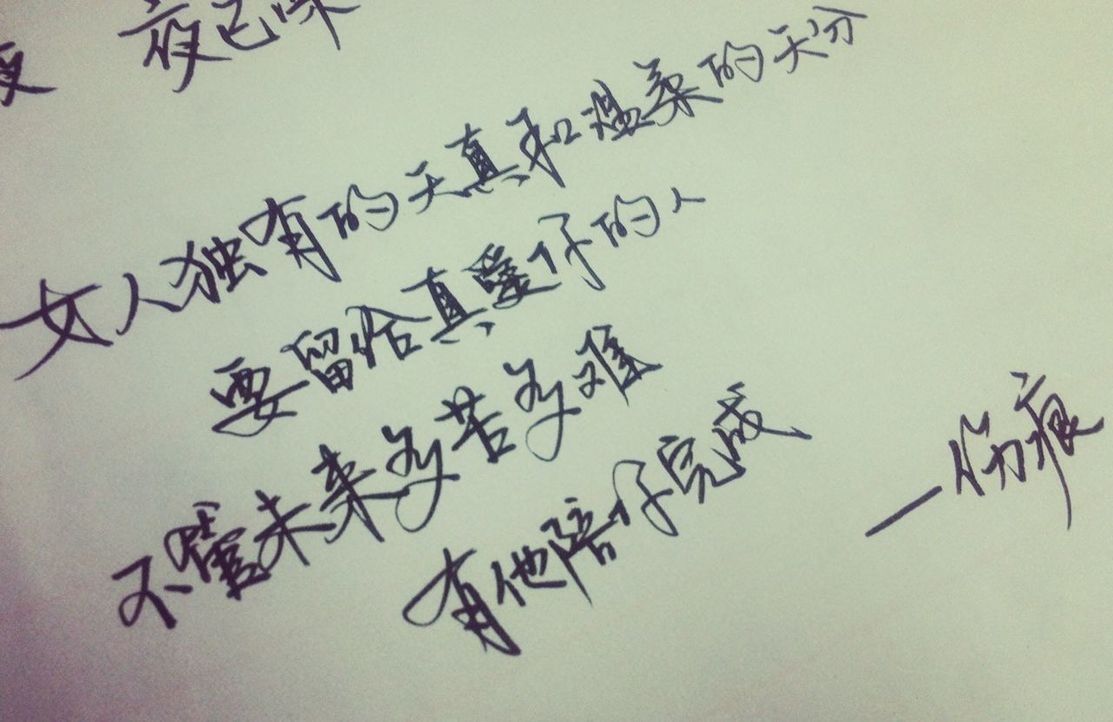 夜已
女人独有的天真和温柔的天分
要留给真愛你的人
不管未来多苦多难
有他陪你完成
—伤痕